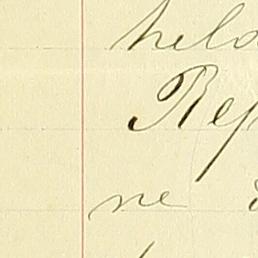 held
Rep
ne